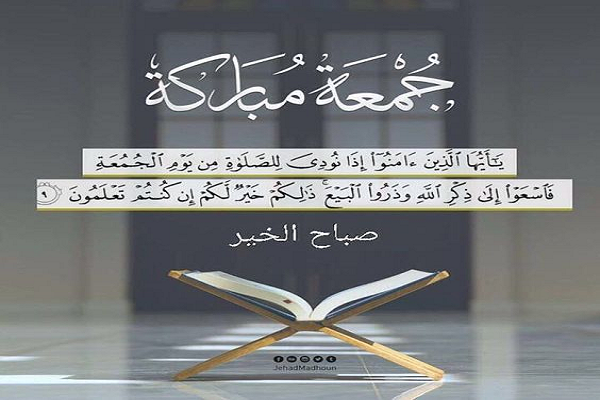 جُمْعَة مُبَارَكة
يَـٰٓأَيُّهَا ٱلَّذِينَ ءَامَنُوٓا۟ إِذَا نُودِىَ لِلصَّلَوٰةِ مِن يَوْمِ ٱلْجُمُعَةِ
فَٱسْعَوْا۟ إِلَىٰ ذِكْرِ ٱللَّهِ وَذَرُوا۟ ٱلْبَيْعَ ۚ ذَٰلِكُمْ خَيْرٌ لَّكُمْ إِن كُنتُمْ تَعْلَمُونَ ٩
صباح الخير
JehadMadhoun